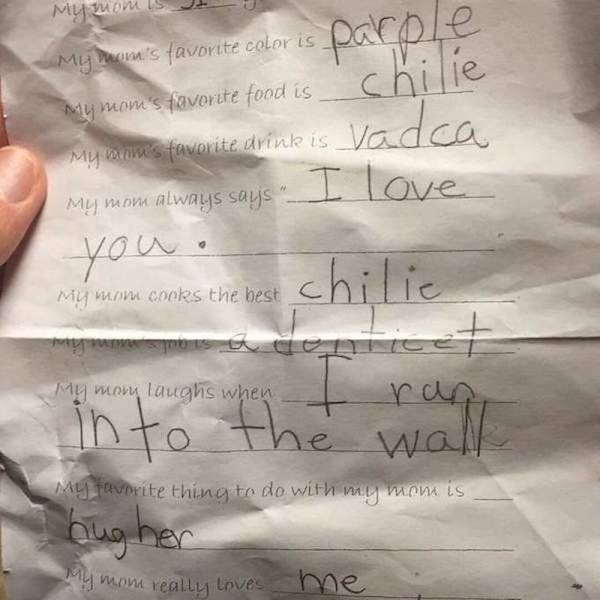 My mom is 31
My mom's favorite color is parple
My mom's favorite food is chilie
My mom's favorite drink is Vadca
My mom always says " I love
you.
My mom cooks the best chilie
My mom's job is a denticet
My mom laughs when I ran
into the wall
My favorite thing to do with my mom is
hug her
My mom really loves me.